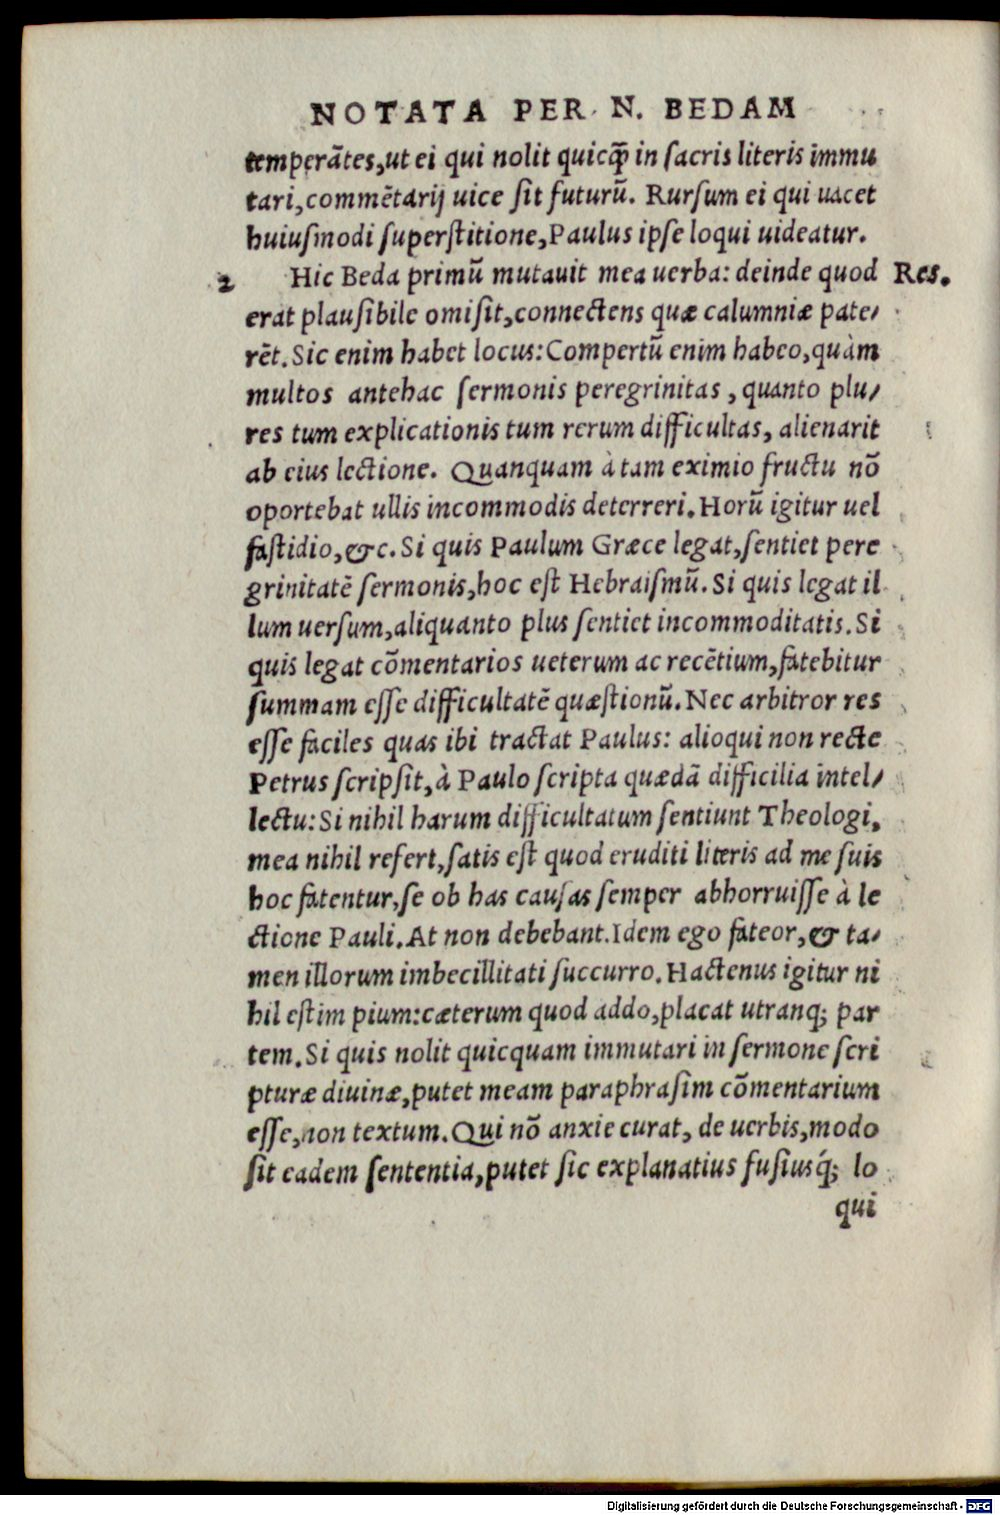 NOTATA PER N. BEDAM
temperãtes,ut ei qui nolit quicq̃ in sacris literis immu
tari,commẽtarij uice sit futurũ. Rursum ei qui uacet
huiusmodi superstitione,Paulus ipse loqui uideatur.
2 Hic Beda primũ mutauit mea uerba: deinde quod Res.
erat plausibile omisit,connectens quæ calumniæ pate/
rẽt.Sic enim habet locus:Compertũ enim habeo,quàm
multos antehac sermonis peregrinitas, quanto plu/
res tum explicationis tum rerum difficultas, alienarit
ab eius lectione. Quanquam à tam eximio fructu nõ
oportebat ullis incommodis deterreri.Horũ igitur uel
fastidio,&c.Si quis Paulum Græce legat,sentiet pere
grinitatẽ sermonis,hoc est Hebraismũ.Si quis legat il
lum uersum,aliquanto plus sentiet incommoditatis.Si
quis legat cõmentarios ueterum ac recẽtium,fatebitur
summam esse difficultatẽ quæstionũ.Nec arbitror res
esse faciles quas ibi tractat Paulus: alioqui non recte
Petrus scripsit,à Paulo scripta quædã difficilia intel/
lectu:Si nihil harum difficultatum sentiunt Theologi,
mea nihil refert,satis est quod eruditi literis ad me suis
hoc fatentur,se ob has causas semper abhorruisse à le
ctione Pauli.At non debebant.Idem ego fateor,& ta/
men illorum imbecillitati succurro.Hactenus igitur ni
hil est im pium:cæterum quod addo,placat utranq; par
tem.Si quis nolit quicquam immutari in sermone scri
pturæ diuinæ,putet meam paraphrasim cõmentarium
esse,non textum.Qui nõ anxie curat, de uerbis,modo
sit eadem sententia,putet sic explanatius fusiusq́; lo
qui
Digitalisierung gefördert durch die Deutsche Forschungsgemeinschaft - DFG